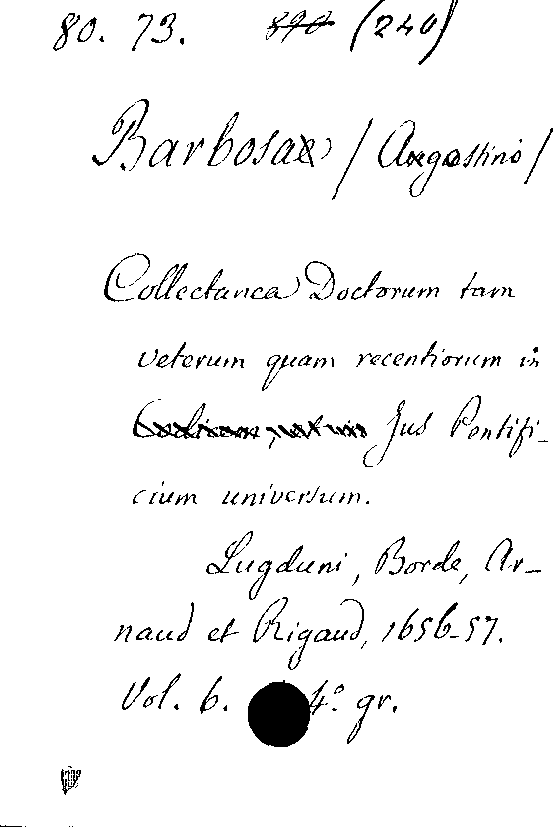 80. 73. 890 (240)
Barbosa / Agostino /
Collectanea Doctorum tam
veterum quam recentiorum in
Jus Pontifi-
cium universum.
Lugduni, Borde, Ar-
naud et Rigaud, 1656-57.
Vol. 6. 4º gr.